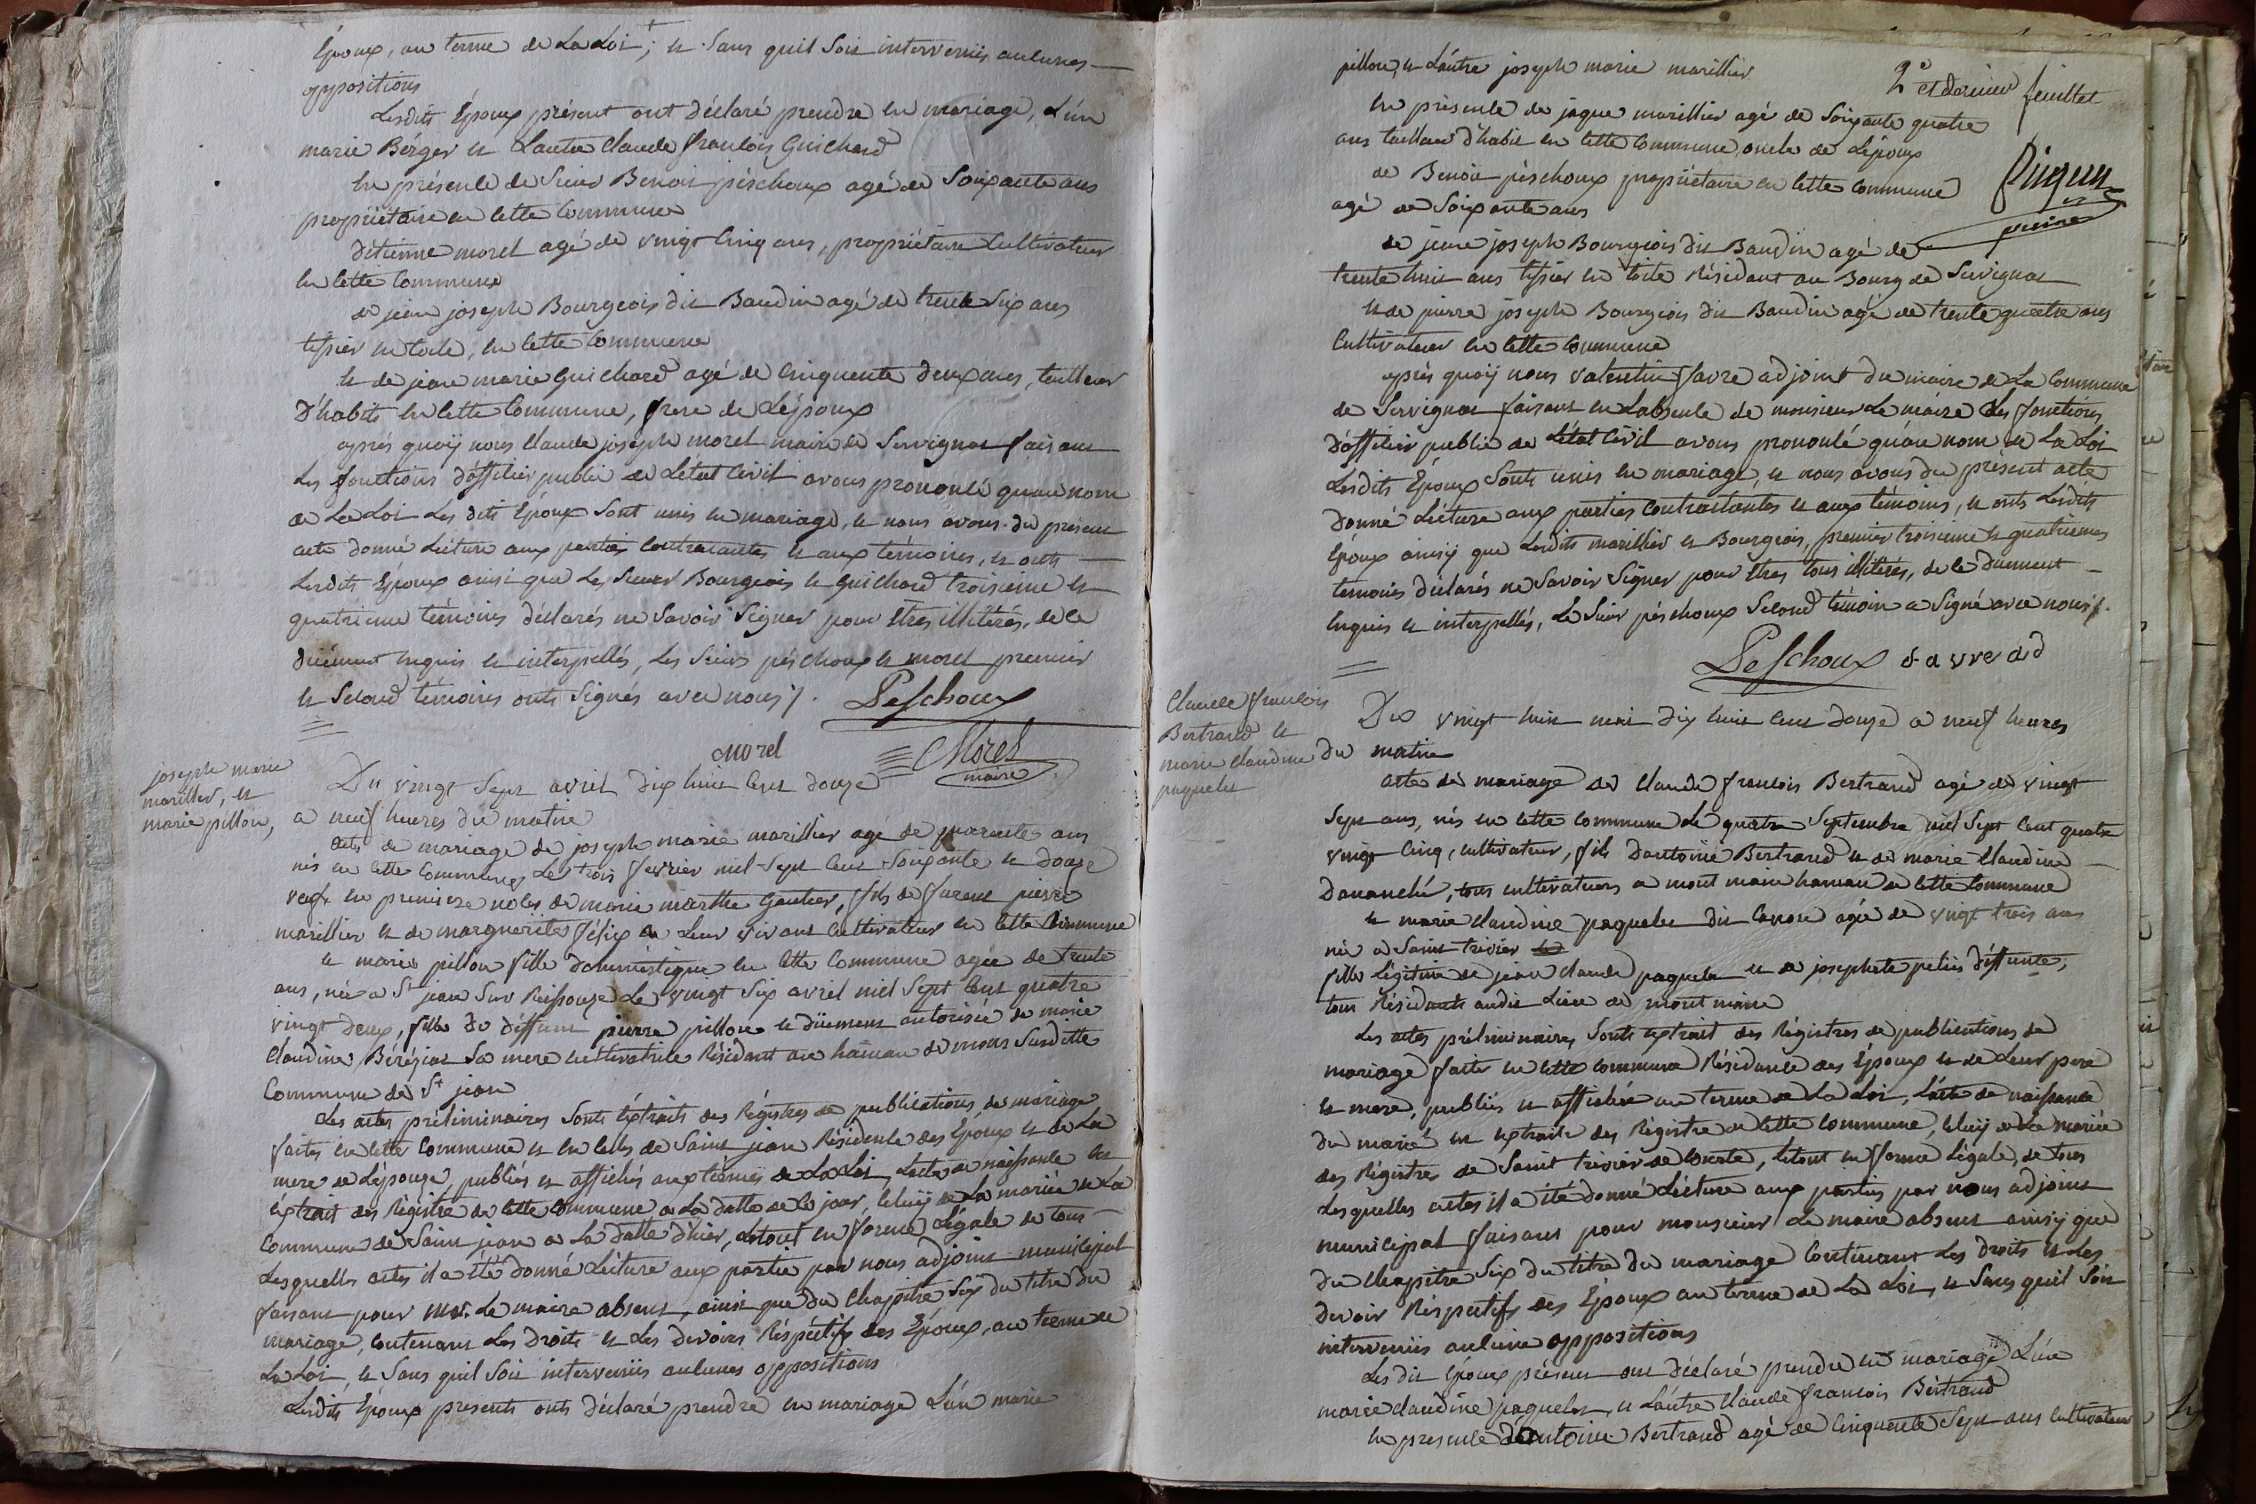 Epoux, au terme de La Loi, et Sans quil Soit intervenüs aulunes
oppositions
Lesdits Epoux présent ont déclaré prendre en mariage, L'ún
marie Bérger et Lautre Claude francois Guichard
En présence de Sieur Benoit péschoux agé de Soixante ans
propriétaire en cette Commune
detienne morel agé de vingt cinq ans, propriétaire Cultivateur
En cette Commune
de jean joseph Bourgeois dit Baudin agé de trente Six ans
tissier en toile, en cette Commune
et de jean marie Guichard agé de Cinquente deux ans, tailleur
D'habits en cette Commune, frere de Lépoux
aprés quoÿ nous Claude joseph morel maire de Servignat faisant
Les fonctions d'officier public de L'état Civil avons prononcé quau nom
de La Loi Les dits Epoux Sont unis en mariage, et nous avons du présent
acte donné Lécture aux parties contractantes et aux témoins, et onts
Lesdits Epoux ainsi que Les Sieurs Bourgeois et Guichard troisieme et
quatrieme témoins déclarés ne Savoir Signer pour êtres illitérés, de ce
düement enquis et interpellés, Les Sieurs péschoux et morel premier
et Second témoins onts Signés avec nous /.
Peschoux
morel
Morel
maire
joseph marie
marillier, et
marie pillon,
Du vingt Sept avril dix huit Cent douze
a neuf heures du matin
acte de mariage de joseph marie marillier agé de quarante ans
nés en cette Commune Le trois fevrier mil Sept Cent Soixante et douze
veuf en premiere noces de marie marthe Gautier, fils de furent pierre
marillier et de marguerite félix de Leur vivant Cultivateur en cette Commune
et marie pillon fille domméstique en cette Commune agée de trente
ans, née a St jean Sur Reissouze Le vingt Six avril mil Sept Cent quatre
vingt deux, fille de deffunt pierre pillon et düement autorisée de marie
Claudine Béréziat Sa mere Cultivatrice Résidant au hameau de mons Susditte
Commune de St jean
Les actes préliminaires Sonts éxtraits des Régistres de publications de mariage
faites en cette Commune et en celle de Saint jean Résidence des Epoux et de La
mere de Lépouze, publiés et affichés aux termes de La Loi, Lacte de naissance est
éxtrait des Régistre de cette Commune a La datte de ce jour, celuÿ de La mariée de La
Commune de Saint jean a La datte d'hier, Letout en forme Légale de tous
Lesquelles actes il a été donné Lécture aux partie par nous adjoint municipal
faisant pour mr. Le maire absent, ainsi que du Chapitre Six du titre du
mariage, Contenant Les Droits et Les devoirs Réspéctifs des Epoux, au terme de
La Loi, et Sans quil Soit intervenüs aulunes oppositions
Lesdits Epoux présents onts déclaré prendre en mariage L'ún marie
pillon, et Láutre joseph marie marillier
2e et dernier feuillet
En présence de jaque marillier agé de Soixante quatre
ans tailleur d'habit en cette Commune, oncle de Lépoux
de Benoit péschoux propriétaire en cette Commune
agé de Soixante ans
de jean joseph Bourgeois dit Baudin agé de
trente huit ans tissier en toile Résidant au Bourg de Servignat
et de pierre joseph Bourgeois dit Baudin agé de trente quatre ans
Cultivateur en cette Commune
aprés quoÿ nous valentin favre adjoint du maire de La Commune
de Servignat faisant en Labsence de monsieur Le maire Les fonctions
d'officier public de L'état Civil avons prononcé quáu nom de La Loi
Lesdits Epoux Sonts unis en mariage, et nous avons du présent acte
donné Lécture aux parties Contractantes et aux témoins, et onts Lesdits
Epoux ainsÿ que Lesdits marillier et Bourgeois, premier troisieme et quatriemes
temoins déclarés ne Savoir Signer pour êtres tous illitérés, de ce duement
Enquis et interpellés, Le Sieur péschoux Second témoin a Signé avec nous /.
Peschoux favre ad
Claude francois
Bertrand et
marie claudine
paquelet
Du vingt huit mai dix huit Cent douze a neuf heures
du matin
acte de mariage de Claude francois Bertrand agé de vingt
Sept ans, nés en cette Commune Le quatre Septembre mil Sept Cent quatre
vingt Cinq, cultivateur, fils dantoine Bertrand et de marie Claudine
Dananché, tous cultivateurs a mont main hameau de cette Commune
et marie Claudine paquelet dit agée de vingt trois ans
née a Saint trivier
fille légitime de jean claude paquelet et de josephete petin déffunte,
tous Résidants audit Lieu de mont main
Les actes préliminaires Sonts éxtrait des Régistres de publications de
mariage faites en cette Commune Résidance des Epoux et de Leur pere
et mere, publiés et affichée au terme de La Loi, Lácte de naissance
du marié est éxtraits des Registre de cette Commune, celuÿ de La mariée
des Régistres de Saint trivier de Courte, letout en forme Légale, de tous
Lesquélles actes il a été donné Lécture aux partis par nous adjoint
municipal faisant pour monsieur Le maire absent ainsÿ que
du Chapitre Six du titre du mariage Contenant Les droits et Les
devoir Réspectifs des Epoux au terme de La Loi, et Sans quil Soit
intervenüs aulune oppositions
Les dit Epoux présent ont déclaré prendre en mariage L'ún
marie claudine paquelet, et Láutre Claude francois Bértrand
En presence dántoine Bertrand agé de Cinquente Sept ans Cultivateur